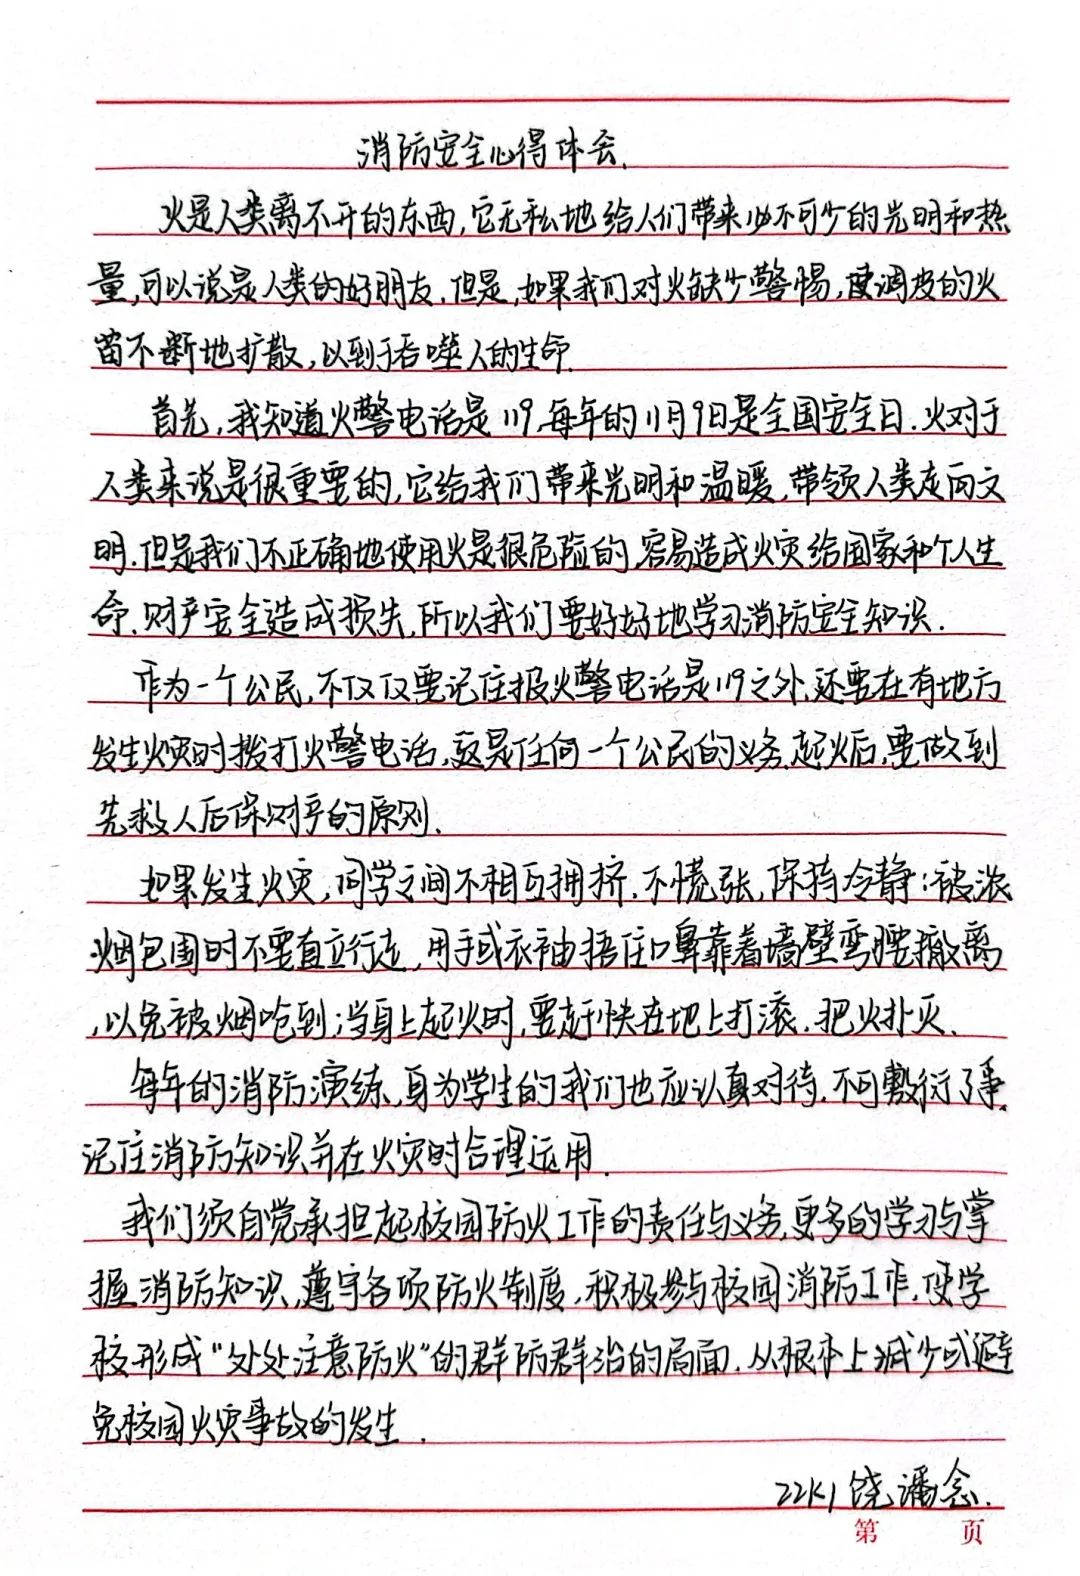 消防安全心得体会.
火是人类离不开的东西,它无私地给人们带来必不可少的光明和热
量,可以说是人类的好朋友.但是,如果我们对火缺少警惕,使调皮的火
苗不断地扩散,以到于吞噬人的生命.
首先,我知道火警电话是119.每年的11月9日是全国安全日.火对于
人类来说是很重要的,它给我们带来光明和温暖,带领人类走向文
明.但是我们不正确地使用火是很危险的.容易造成火灾给国家和个人生
命.财产安全造成损失,所以我们要好好地学习消防安全知识.
作为一个公民,不仅仅要记住报火警电话是119之外,还要在有地方
发生火灾时拨打火警电话,这是任何一个公民的义务.起火后,要做到
先救人后保财产的原则.
如果发生火灾,同学之间不相互拥挤.不慌张,保持冷静:被浓
烟包围时不要直立行走,用手或衣袖捂住口鼻靠着墙壁弯腰撤离
,以免被烟呛到;当身上起火时,要赶快在地上打滚.把火扑灭.
每年的消防演练,身为学生的我们也应认真对待.不可敷衍了事.
记住消防知识并在火灾时合理运用.
我们须自觉承担起校园防火工作的责任与义务,更多的学习与掌
握消防知识,遵守各项防火制度,积极参与校园消防工作,使学
校形成"处处注意防火"的群防群治的局面.从根本上减少或避
免校园火灾事故的发生.
22K1 饶潘念.
第 页